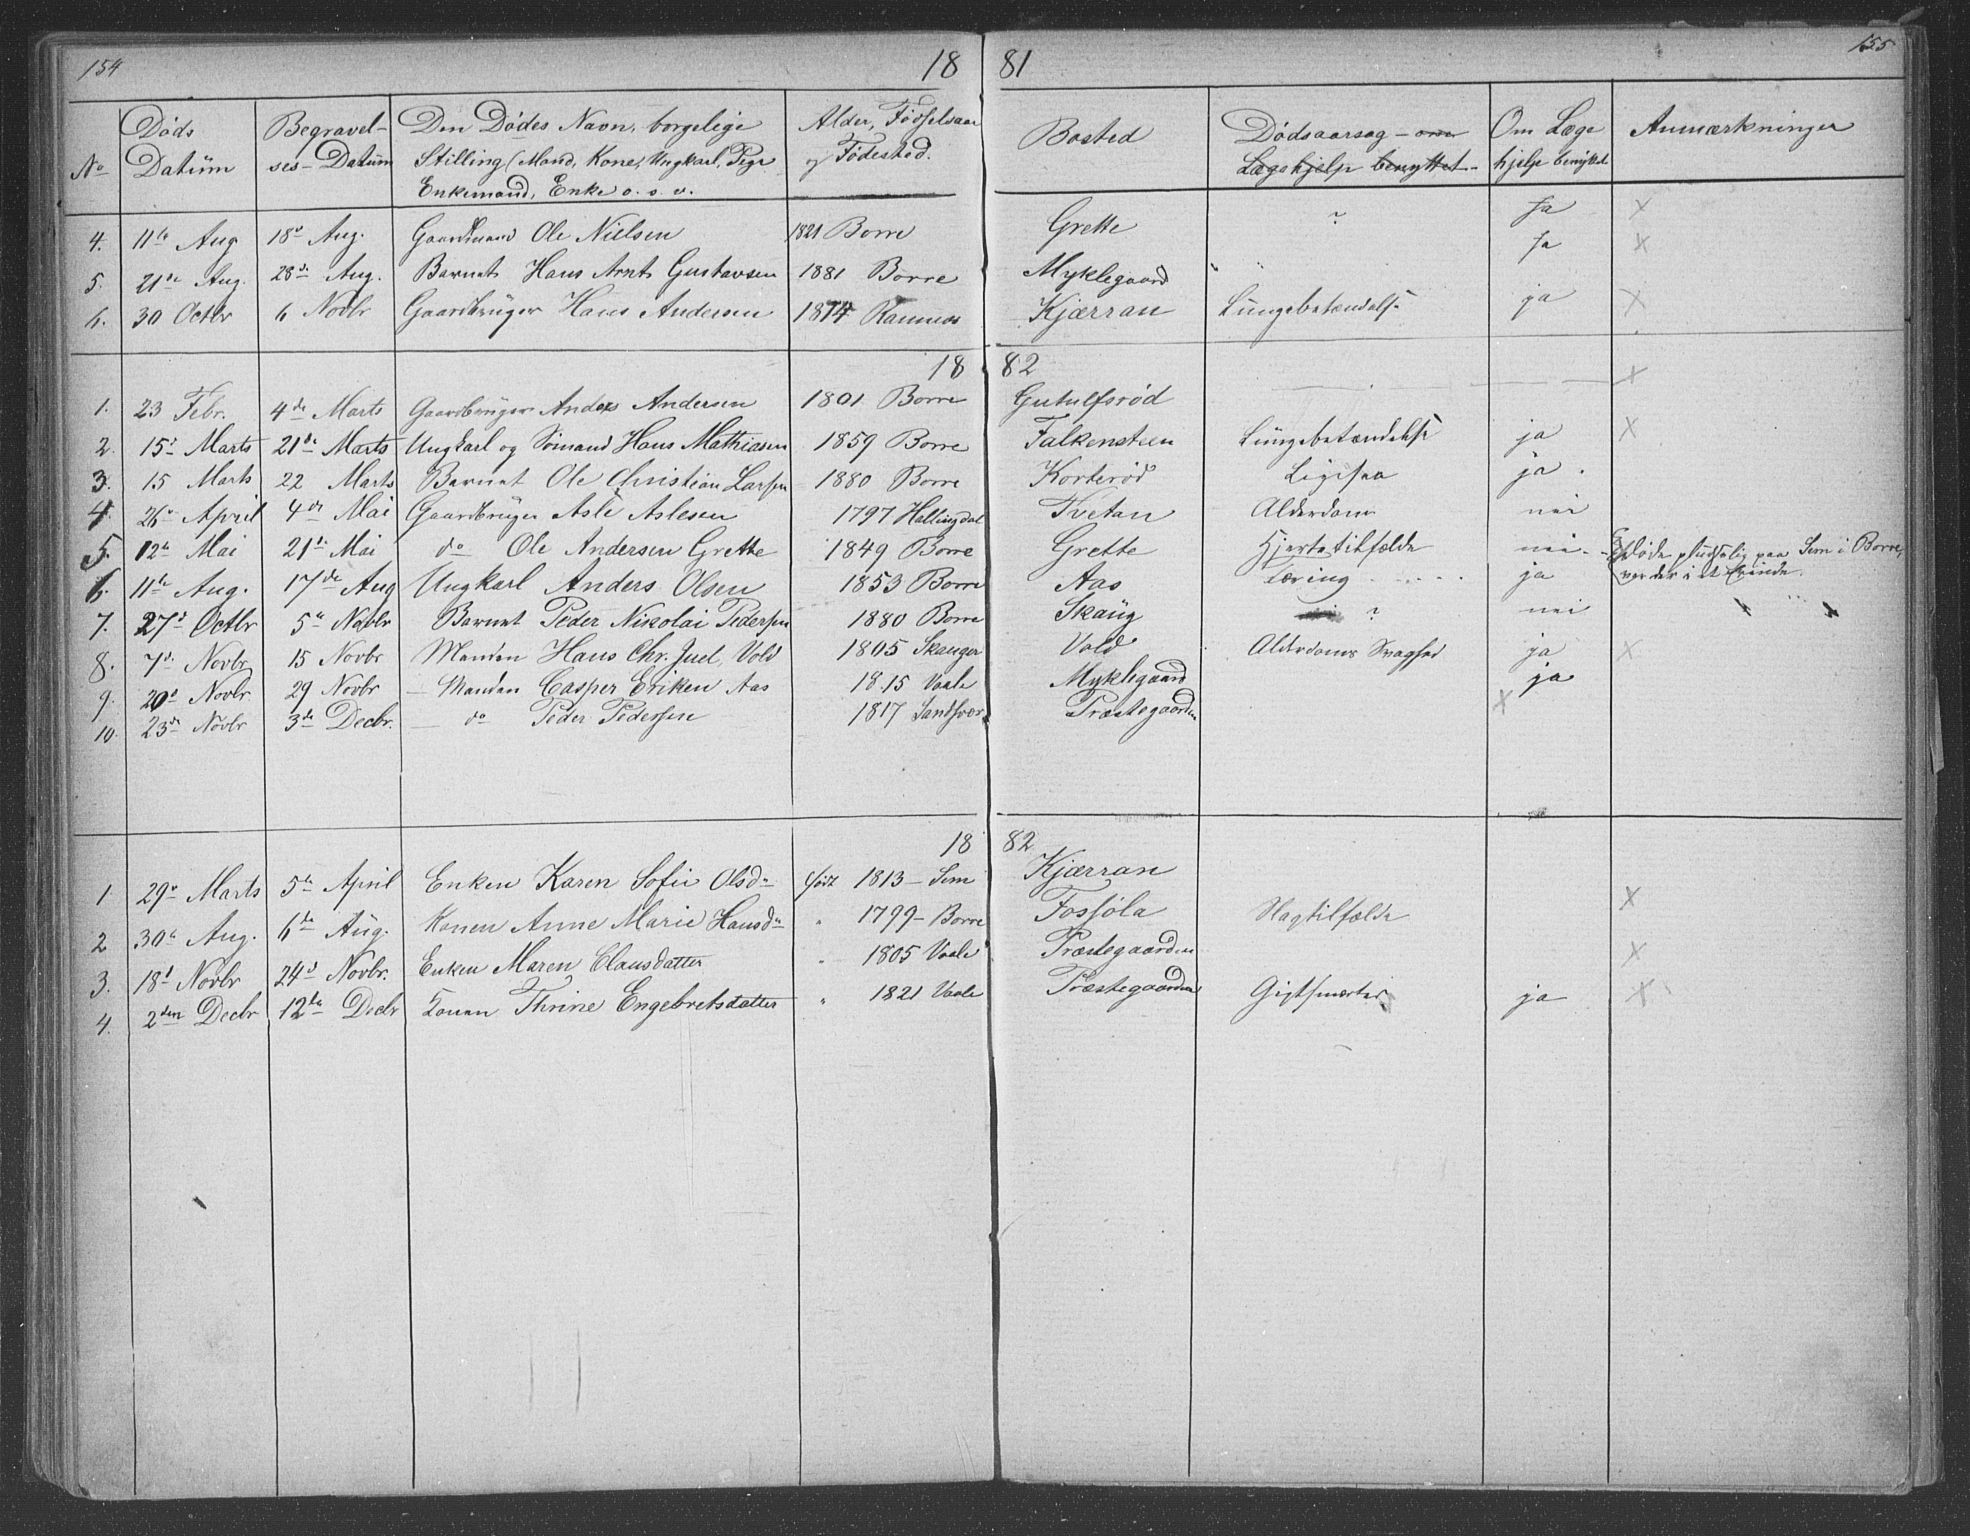 154 18 81 155
No Døds Datum Begravelses-Datum Den Dødes Navn, borgelige Stilling (Mand, Kone, Ungkarl, Pige Enkemand, Enke o. s. v. Alder, Fødselsaar og Fødested. Bosted Dødsaarsag – om Lægehjelp benyttet – Om Læge hjelp benyttet Anmærkninger
4. 11te Aug 18de Aug. Gaardmand Ole Nielsen 1821 Borre Grette ? Ja ×
5. 21de Aug. 28de Aug. Barnet Hans Arnt Gustavsen 1881 Borre Myklegaard " Ja ×
6. 30 Octbr 6 Novbr Gaardbrüger Hans Andersen 1814 Ramnæs Kjærran Lüngebetændelse ja ×
18 82
1. 23 Febr. 4de Marts Gaardbrüger Anders Andersen 1801 Borre Gutulfsrød ×
2. 15de Marts 21de Marts Ungkarl og Sömand Hans Mathiasen 1859 Borre Falkensteen Lüngebetændelse ja ×
3. 15 Marts 22 Marts Barnet Ole Christian Larsen 1880 Borre Korterød ja
4. 26de April 4de Mai Gaardbrüger Asle Aslesen 1797 Hallingdal Tvetan Alderdom nei
5. 12te Mai 21de Mai do Ole Andersen Grette 1849 Borre Grette Hjertetilfælde nei Døde pludselig paa Sem i Borre, var der i et Erinde.
6. 11te Aug. 17de Aug Ungkarl Anders Olsen 1853 Borre Aas Tæring ja
7. 27de Octbr 5te Novbr Barnet Peder Nikolai Pedersen 1880 Borre Skaüg ? nei
8. 7de Novbr 15 Novbr Manden Hans Chr. Juel, Vold 1805 Skauger Vold Alderdoms Svaghed ja ×
9. 20de Novbr 29 Novbr – Manden Casper Eriken Aas 1815 Vaale Myklegaard ja
10. 23de Novbr 3de Decbr. – do Peder Pedersen 1817 Sandsvær Præstegaarden ×
18 82
1 29de Marts 5te April Enken Karen Sofie Olsdr født 1813 – Sem Kjærran ×
2 30te Aug. 6te Aug. Konen Anne Marie Hansdr " 1799 – Borre Fossøla Slagtilfælde
3. 18de Novbr 24de Novbr. Enken Maren Clausdatter " 1805 Vaale Præstegaarden ×
4. 2den Decbr 12te Decbr Konen Thrine Engebretsdatter " 1821 Vaale Præstegaarden Gigtsmerter ja ×